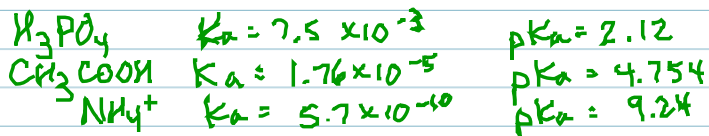 H₃PO₄ Ka = 7.5 x10⁻³ pKa = 2.12
CH₃COOH Ka = 1.76x10⁻⁵ pKa = 4.754
NH₄⁺ Ka = 5.7x10⁻¹⁰ pKa = 9.24